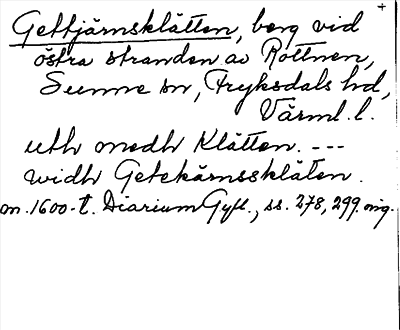 +
Gettjärnsklätten, berg vid
östra stranden av Rottnen,
Sunne sn, Fryksdals hd,
Värml. l.
uth medh Klätten. ---
widh Getekärnsskläten.
m. 1600-t. Diarium Gyll., ss. 278, 299. orig.